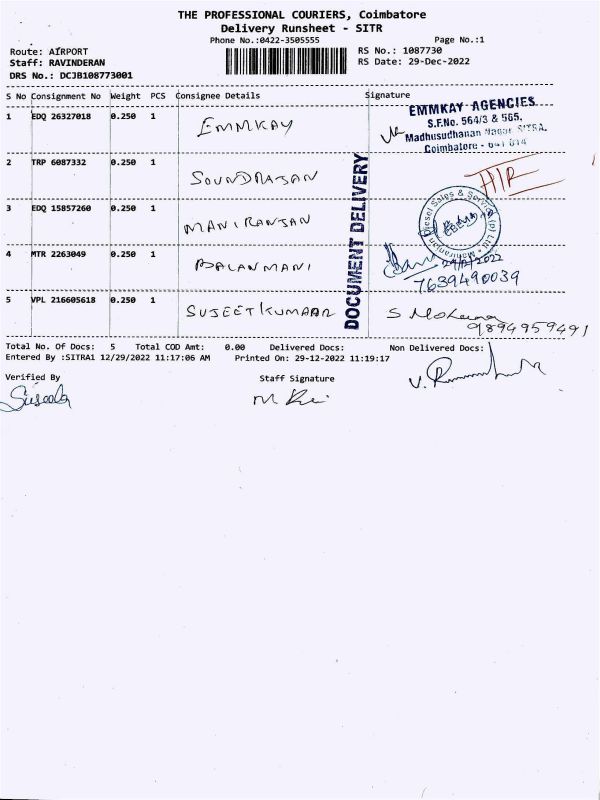 THE PROFESSIONAL COURIERS, Coimbatore
Delivery Runsheet - SITR
Phone No.:0422-3505555
Page No.:1
Route: AIRPORT
RS No.: 1087730
Staff: RAVINDERAN
RS Date: 29-Dec-2022
DRS No.: DCJB108773001
S No Consignment No Weight PCS Consignee Details Signature
1 EDQ 26327018 0.250 1 EMMKAY
EMMKAY AGENCIES
S.F.No. 564/3 & 565,
Madhusudhanan Nagar SITRA,
Coimbatore - 641 014
2 TRP 6087332 0.250 1 SOUNDRAJAN
3 EDQ 15857260 0.250 1 MANIRANJAN
Diesel Sales & Service (p) Ltd
4 MTR 2263049 0.250 1 BALANMANI
29/12/2022
7639490039
5 VPL 216605618 0.250 1 SUJEETKUMAAR
9894959491
DOCUMENT DELIVERY
Total No. Of Docs: 5 Total COD Amt: 0.00 Delivered Docs: Non Delivered Docs:
Entered By :SITRA1 12/29/2022 11:17:06 AM Printed On: 29-12-2022 11:19:17
Verified By Staff Signature